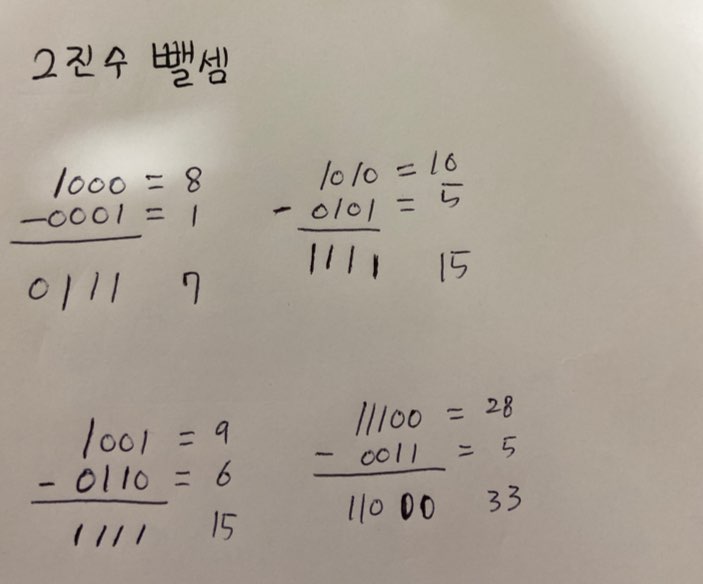 2진수 뺄셈
1000 = 8
-0001 = 1
0111 7
1010 = 10
- 0101 = 5
1111 15
1001 = 9
- 0110 = 6
1111 15
11100 = 28
- 0011 = 5
11000 33